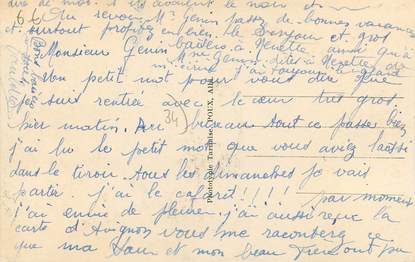 Au revoir Mr Genin passez de bonnes vacances
et surtout profitez en bien. Bonjour et gros
baisers à Nenette ainsi qu'à
Monsieur Genin
Mme Genin dites à Nenette de
m'écrire j'ai toujours le cafard
Un petit mot pour vous dire que
je suis rentrée avec le cœur très gros
hier matin. Au bureau tout ce passe bien
j'ai lu le petit mot que vous aviez laissé
dans le tiroir. Tous les dimanches je vais
partir. j'ai le cafard!!!! par moment
j'ai envie de pleurer. j'ai aussi reçu la
carte d'Avignon vous me raconterez ce
que ma sœur et mon beau frère ont pu
Phototypie Tarnaise, POUX, Albi
34)